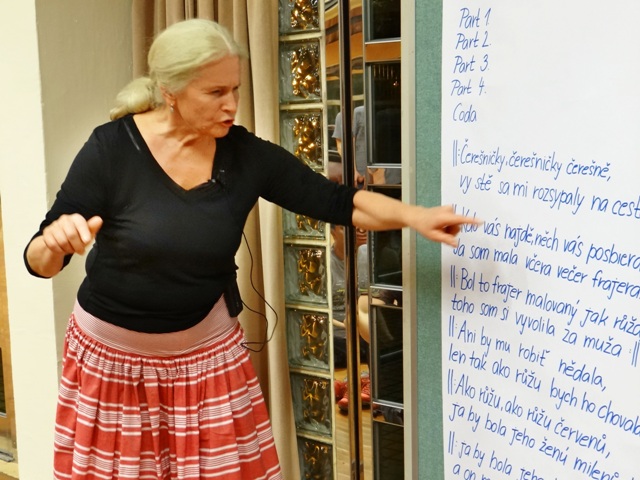 Part 1
Part 2
Part 3
Part 4.
Coda
||: Čerešničky, čerešničky čerešně,
vy stě sa mi rozsypaly na cest
||: Kdo vás najdě, něch vás posbiera
Ja som mala včera večer frajera
||: Bol to frajer malovaný jak růža
toho som si vyvolila za muža :||
||: Ani by mu robiť nědala,
len tak ako růžu bych ho chovala
||: Ako růžu, ako růžu červenů,
ja by bola jeho ženů milenů
||: ja by bola jeho
a on